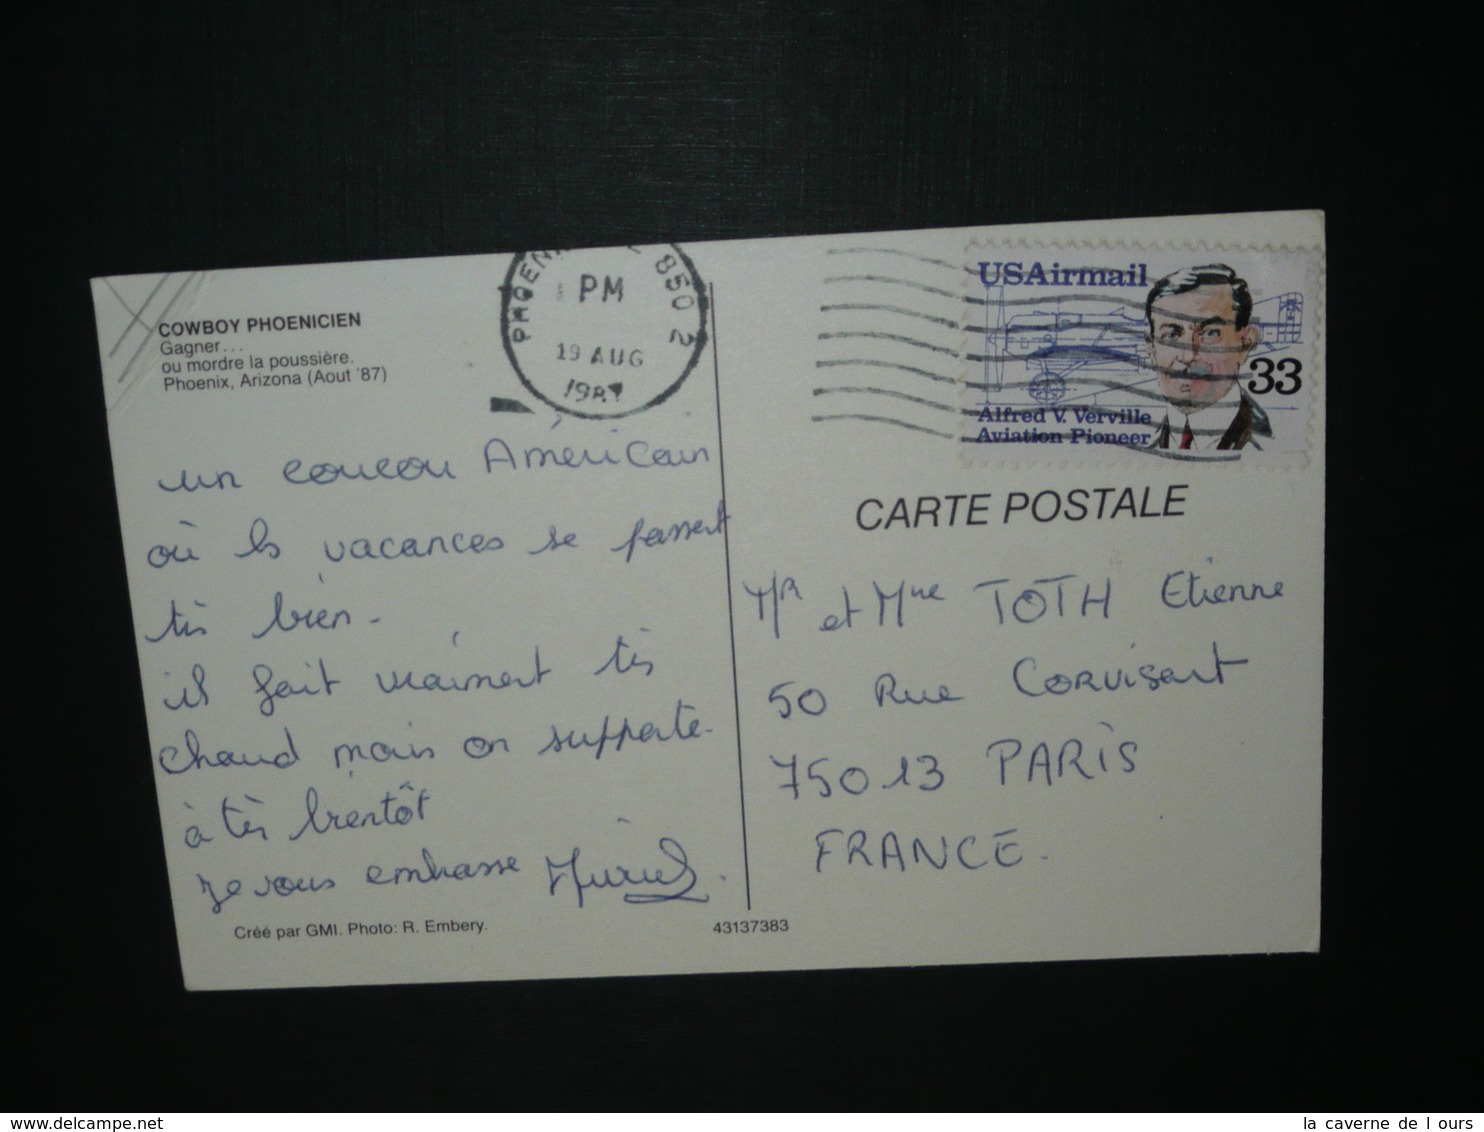 COWBOY PHOENICIEN
Gagner...
ou mordre la poussière.
Phoenix, Arizona (Aout '87)
PM
19 AUG
1987
850 2
USAirmail
33
Alfred V. Verville
Aviation Pioneer
CARTE POSTALE
un coucou Américain
où les vacances se passent
très bien.
il fait vraiment très
chaud mais on supporte.
à très bientôt
je vous embrasse Muriel.
Mr et Mme TOTH Etienne
50 Rue CORVISART
75013 PARIS
FRANCE.
Créé par GMI. Photo: R. Embery.
43137383
delcampe.net
la caverne de l ours